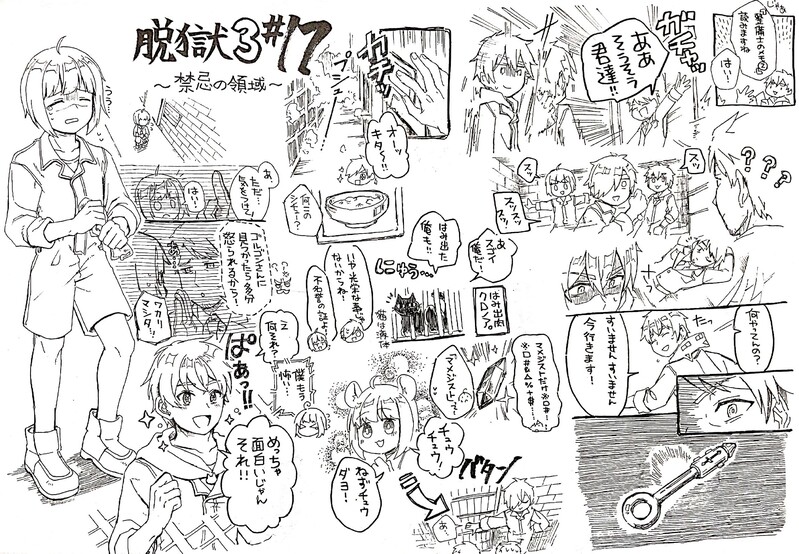 脱獄3#17
〜禁忌の領域〜
うぅ…
あ
ただ…
気をつけて
はい…
「ゴルゴンさんに
見つかったら多分
怒られるから!
ワカリ
マシタ…
ぱぁっ!!
めっちゃ
面白いじゃん
それ!!
プシュー
ガチッ
オーッ
キター!!
何このシチュー?
はみ出た
俺も!!
にゅぅ…
あ
スゴイ
俺だ!
はみ出肉
クロンプ。
猫は液体
いや光栄な事じゃ
ないからね!
不名誉の証よ!
え
何それ?
僕もう
怖い…
「マメジスト」って
マメジストだけ※□#!
※□#&△%+#!…
チュウ
チュウ!
ねずチュウ
ダヨ!
バタン
あ
ガチャッ
ああ
そうそう
君達!!
整備士のメモ②
読みますね
はい!
スッ
スッ
スッスッ
スッ
???
たっ
何やってんの?
すいませんすいません
今行きます!